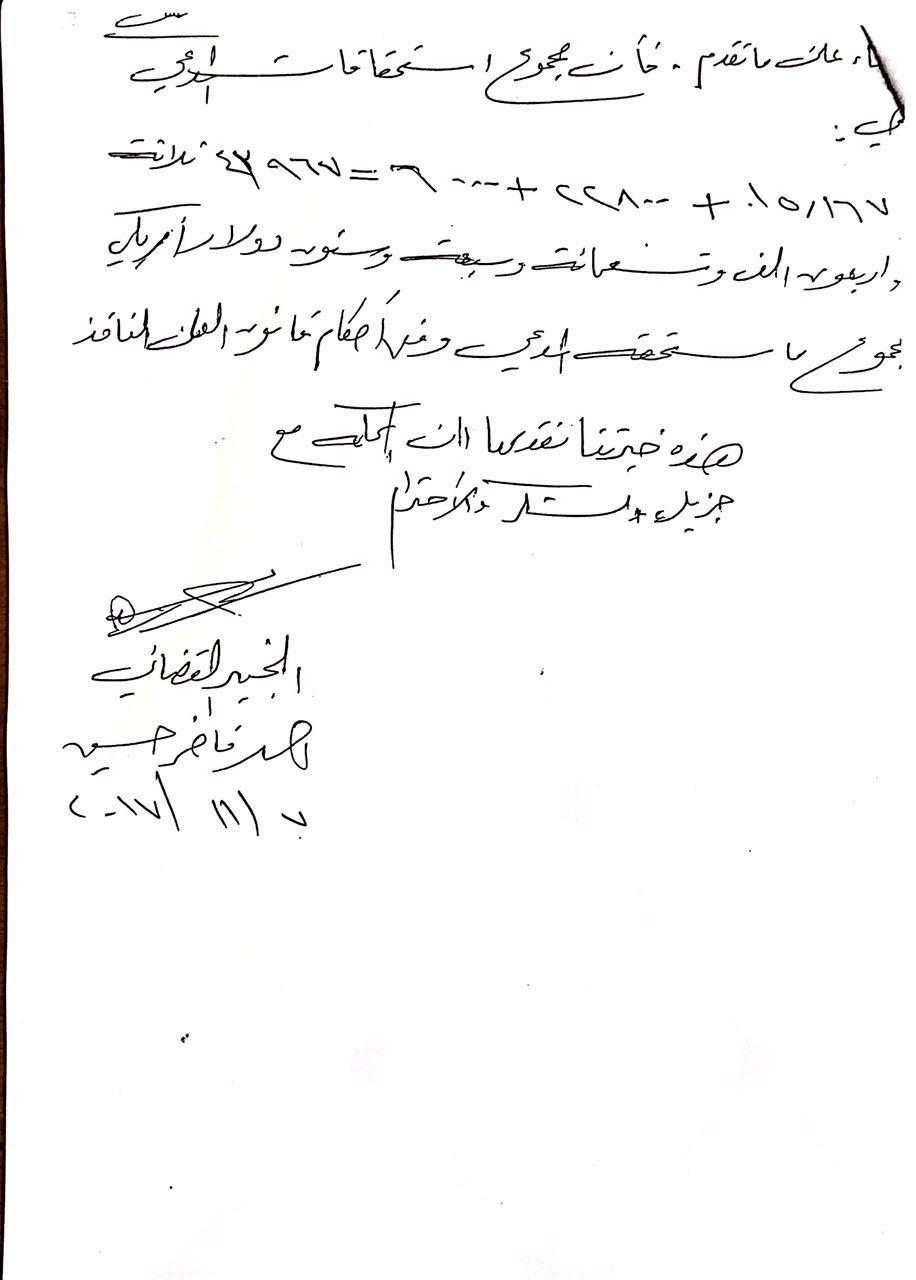 س
بناء على ما تقدم . فأن مجموع استحقاقات المدعي
هي :
١٥,١٦٧ + ٢٢٨٠٠ + ٦٠٠٠ = ٤٣٩٦٧ ثلاثة
واربعون الف وتسعمائة وسبعة وستون دولار أمريكي
مجموع ما ستحقه المدعي وفق أحكام قانون العمل النافذ
هذه خبرتنا نقدمها الى المحكمة مع
جزيل الشكر والاحترام
الخبير القضائي
احمد فاخر حسين
٧ / ١١ / ٢٠١٧